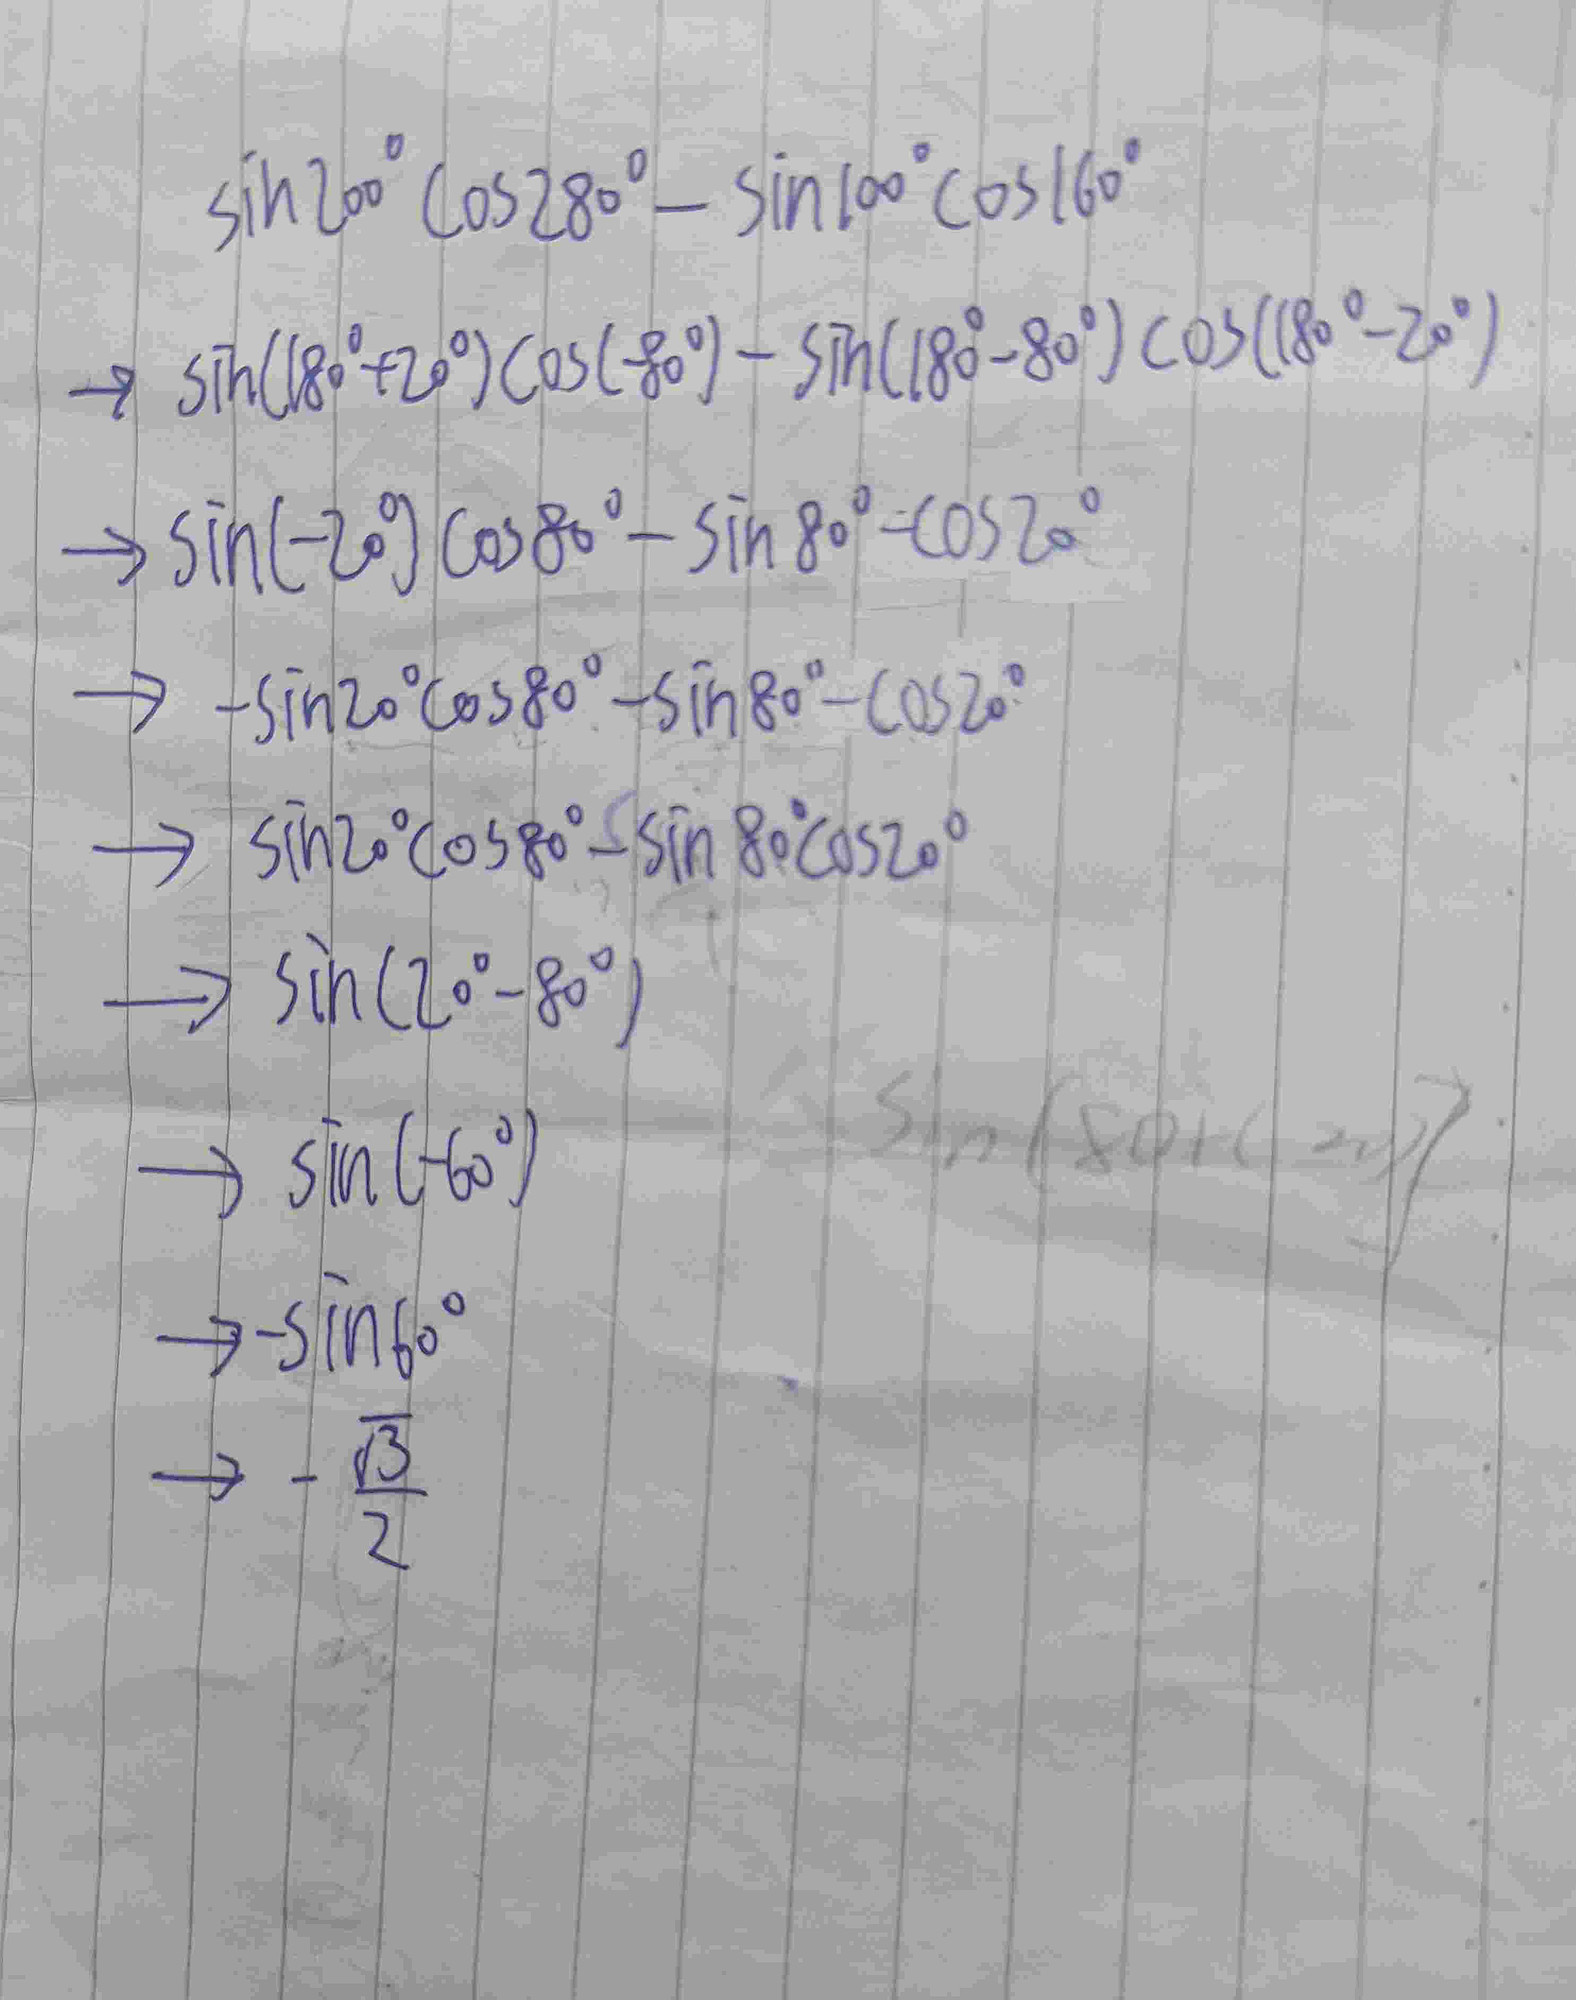 sin200° cos280° - sin100° cos160°
→ sin(180°+20°) cos(-80°) - sin(180°-80°) cos(180°-20°)
→ sin(-20°) cos80° - sin80° -cos20°
→ -sin20° cos80° - sin80° - cos20°
→ sin20° cos80° - sin80° cos20°
→ sin(20°-80°)
→ sin(-60°)
→ -sin60°
→ - √3/2